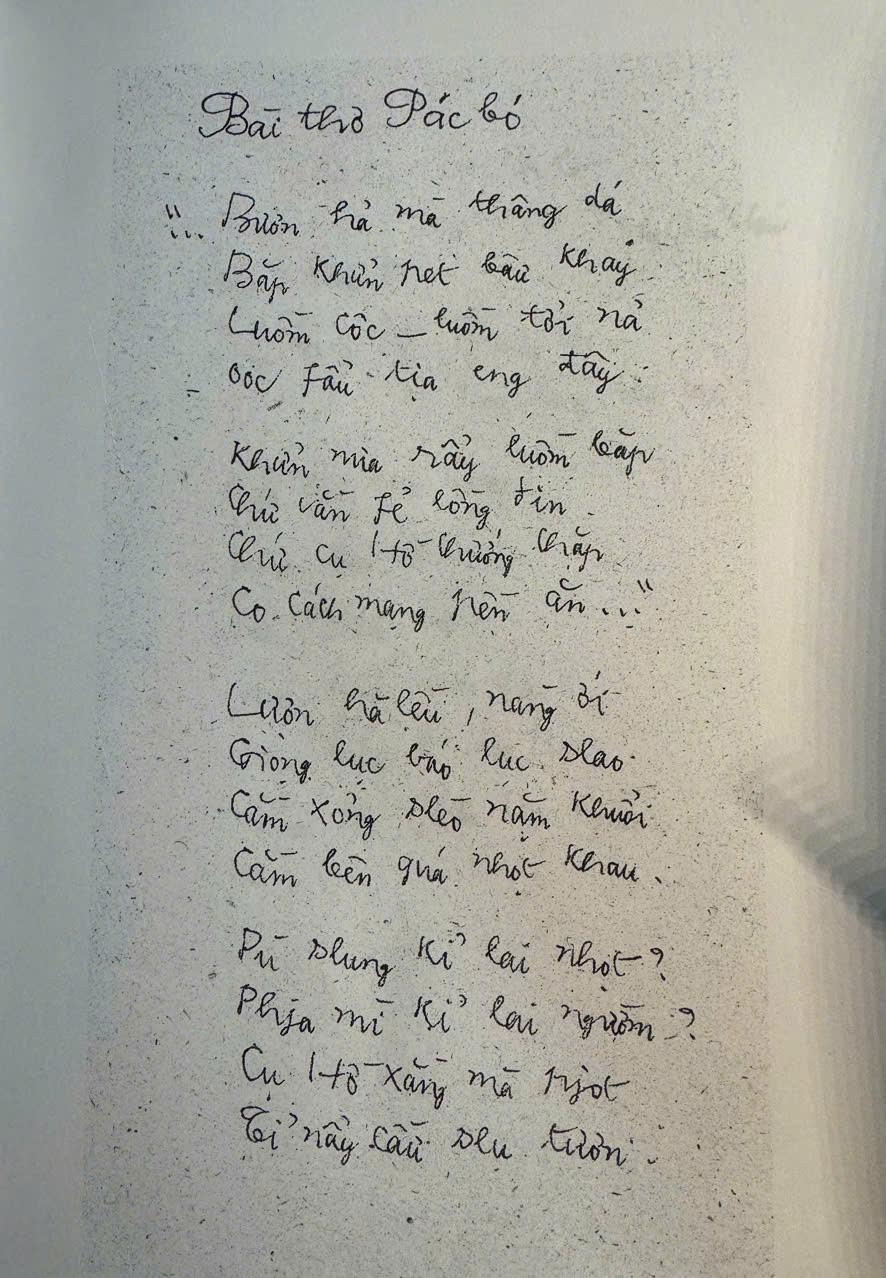 Bài thơ Pác bó
"... Bươn hả mà thâng dá
Bắp khửn pet bâu khay
Luồm cốc - luồm tởi nả
Oóc fầu tịa eng đây.
Khửn mìa rẩy luồm bắp
Chứ vằn fẻ lồng đin.
Chứ cụ Hồ thướng chắp
Co cách mạng pền ăn..."
Lươn hà lều, nàng ới
Giòng lục báo lục slao
Cằm xỏng slèo nằm khuổi
Cằm bên quá nhọt khau.
Pù slung kỉ lai nhọt?
Phja mì kỉ lai ngườm?
Cụ Hồ xằng mà pjọt
Tỉ nẩy cẩu slụ tươn.